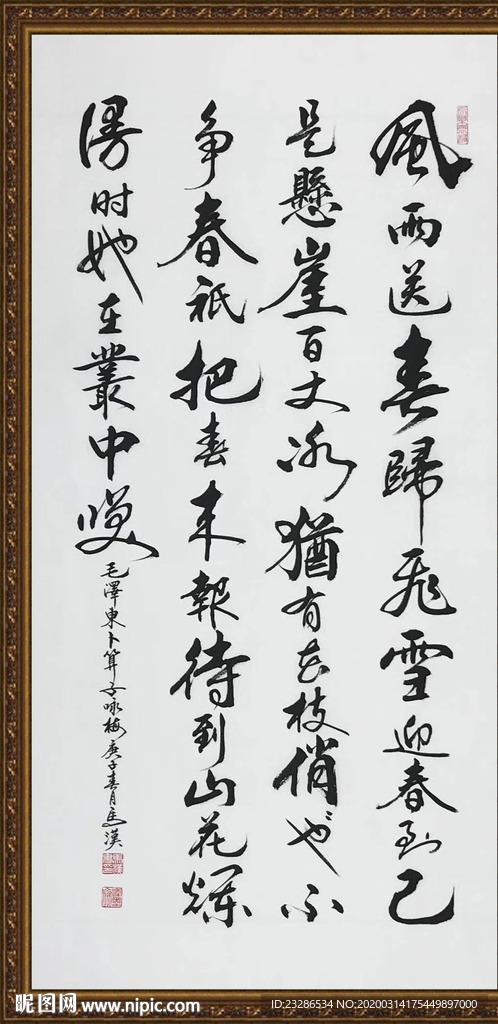 風雨送春歸飛雪迎春到已
是懸崖百丈冰猶有花枝俏〻也不
争春祇把春来報待到山花爛
漫时她在叢中咲
毛澤東卜算子咏梅庚子春月
昵图网 www.nipic.com
ID:23286534 NO:20200314175449897000